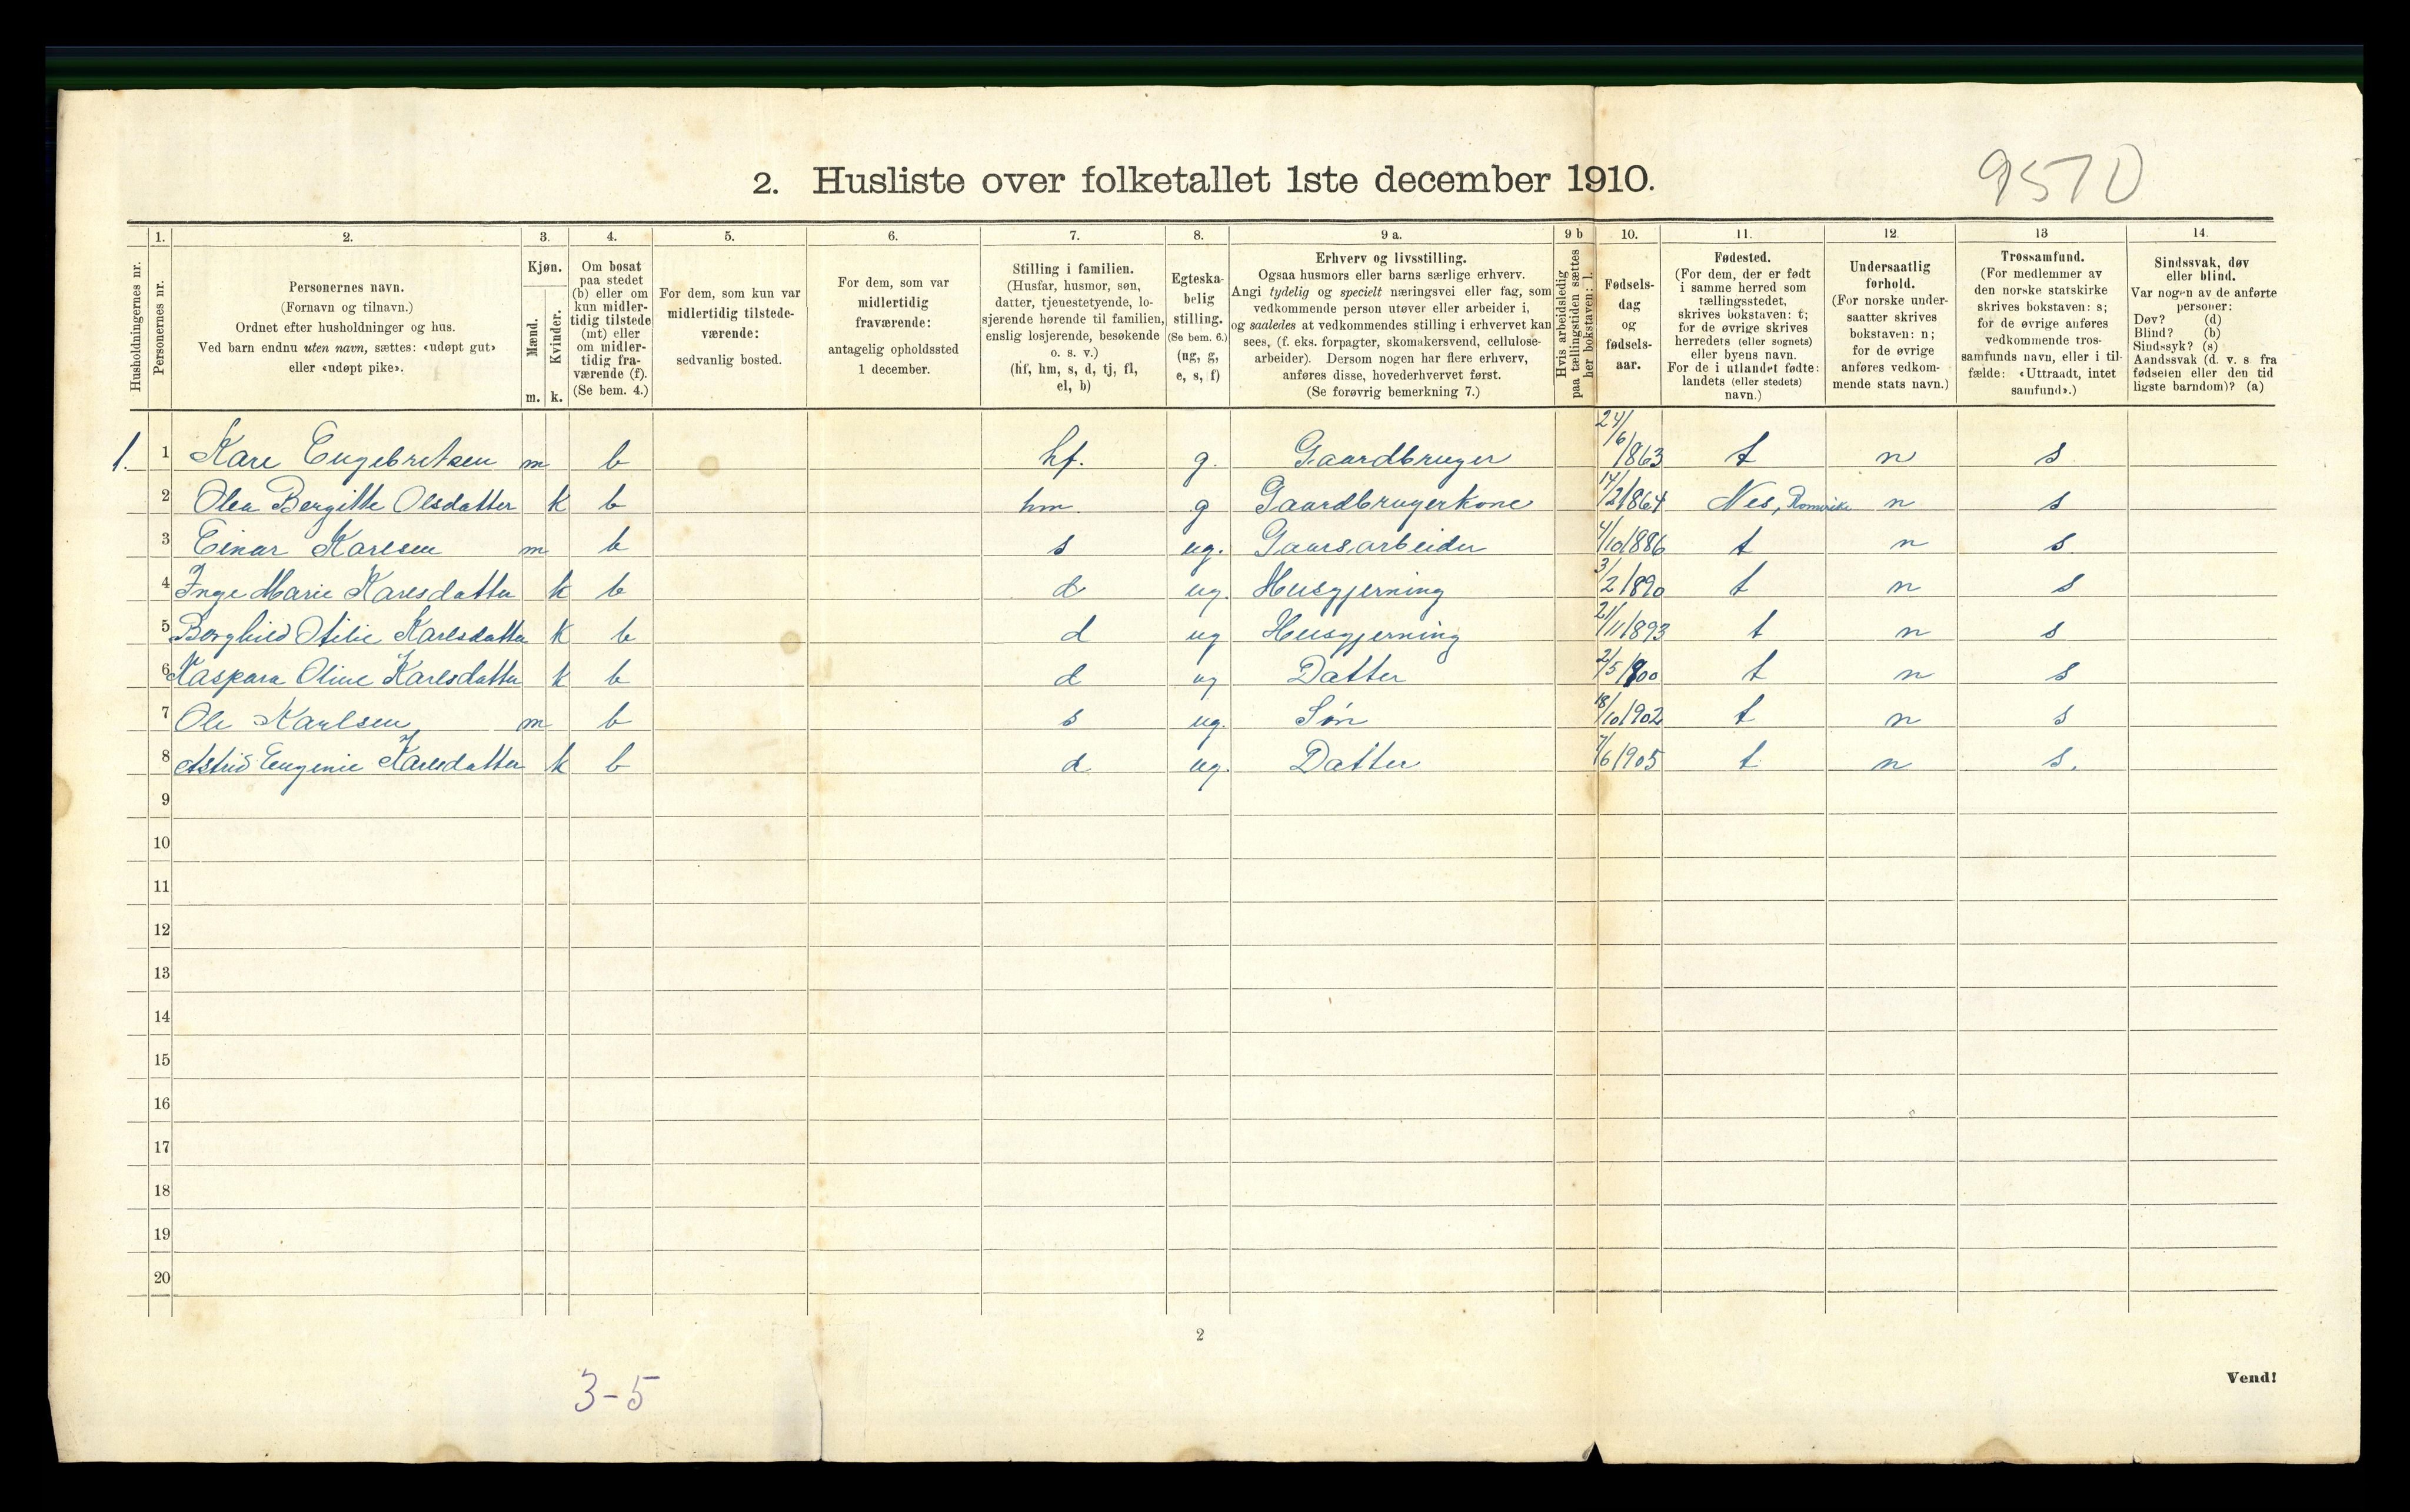 2. Husliste over folketallet 1ste december 1910.
9570
1. 2. 3. 4. 5. 6. 7. 8. 9 a. 9 b 10. 11. 12. 13 14.
Husholdningernes nr.
Personernes nr.
Personernes navn.
(Fornavn og tilnavn.)
Ordnet efter husholdninger og hus.
Ved barn endnu uten navn, sættes: «udøpt gut»
eller «udøpt pike».
Kjøn.
Mænd.
Kvinder.
m. k.
Om bosat
paa stedet
(b) eller om
kun midler-
tidig tilstede
(mt) eller
om midler-
tidig fra-
værende (f).
(Se bem. 4.)
For dem, som kun var
midlertidig tilstede-
værende:
sedvanlig bosted.
For dem, som var
midlertidig
fraværende:
antagelig opholdssted
1 december.
Stilling i familien.
(Husfar, husmor, søn,
datter, tjenestetyende, lo-
sjerende hørende til familien,
enslig losjerende, besøkende
o. s. v.)
(hf, hm, s, d, tj, fl,
el, b)
Egteska-
belig
stilling.
(Se bem. 6.)
(ug, g,
e, s, f)
Erhverv og livsstilling.
Ogsaa husmors eller barns særlige erhverv.
Angi tydelig og specielt næringsvei eller fag, som
vedkommende person utøver eller arbeider i,
og saaledes at vedkommendes stilling i erhvervet kan
sees, (f. eks. forpagter, skomakersvend, cellulose-
arbeider). Dersom nogen har flere erhverv,
anføres disse, hovederhvervet først.
(Se forøvrig bemerkning 7.)
Hvis arbeidsledig
paa tællingstiden sættes
her bokstaven: l.
Fødsels-
dag
og
fødsels-
aar.
Fødested.
(For dem, der er født
i samme herred som
tællingsstedet,
skrives bokstaven: t;
for de øvrige skrives
herredets (eller sognets)
eller byens navn.
For de i utlandet fødte:
landets (eller stedets)
navn.)
Undersaatlig
forhold.
(For norske under-
saatter skrives
bokstaven: n;
for de øvrige
anføres vedkom-
mende stats navn.)
Trossamfund.
(For medlemmer av
den norske statskirke
skrives bokstaven: s;
for de øvrige anføres
vedkommende tros-
samfunds navn, eller i til-
fælde: «Uttraadt, intet
samfund».)
Sindssvak, døv
eller blind.
Var nogen av de anførte
personer:
Døv? (d)
Blind? (b)
Sindssyk? (s)
Aandssvak (d. v. s fra
fødselen eller den tid
ligste barndom)? (a)
1. 1 Karl Engebretsen m b hf. g. Gaardbruger 24/6/1863 t n s
2 Olea Bergitte Olsdatter k b hm. g Gaardbrugerkone 14/2/1864 Nes, Romerike n s
3 Einar Karlsen m b s ug. Gaarsarbeider 4/10/1886 t n s
4 Inge Marie Karlsdatter k b d ug. Husgjerning 3/2/1890 t n s
5 Borghild Otilie Karlsdatter k b d ug Husgjerning 21/11/1893 t n s
6 Kaspara Oline Karlsdatter k b d ug Datter 2/5/1900 t n s
7 Ole Karlsen m b s ug. Søn 18/10/1902 t n s
8 Astrid Eugenie Karlsdatter k b d ug. Datter 7/6/1905 t n s.
9
10
11
12
13
14
15
16
17
18
19
20
2
3-5
Vend!